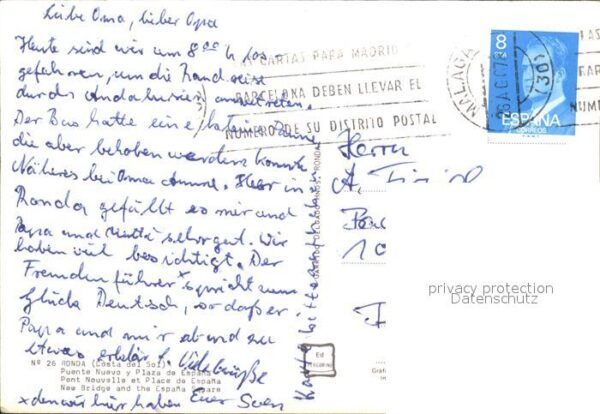 Liebe Oma, lieber Opa
Heute sind wir um 8⁰⁰ h los
gefahren, um die Rundreise
durch Andalusien anzutreten.
Der Bus hatte eine
die aber behoben werden konnte
Näheres bei Oma Hier in
Ronda gefällt es mir und
Papa und Mutti sehr gut. Wir
haben viel besichtigt. Der
Fremdenführer x spricht zum
Glück Deutsch, so daß er
Papa und mir ab und zu
etwas erklärt. Viele Grüße
Euer Sven
x den wir hier haben
Karte bitte aufheben
Herrn
A.
CARTAS PARA MADRID
BARCELONA DEBEN LLEVAR EL
NUMERO DE SU DISTRITO POSTAL
MALAGA
8
PTA
ESPAÑA
CORREOS
Nº 26 RONDA (Costa del Sol)
Puente Nuevo y Plaza de España
Pont Nouvelle et Place de España
New Bridge and the España Square
Ed
privacy protection
Datenschutz